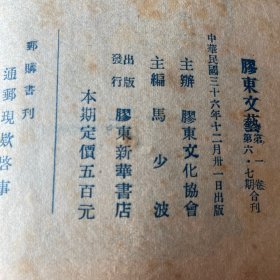 膠東文藝 第一卷 第六·七期合刊
中華民國三十六年十二月卅一日出版
主辦 膠東文化協會
主編 馬少波
出版 發行 膠東新華書店
本期定價五百元
郵購書刊
通郵現欵啓事